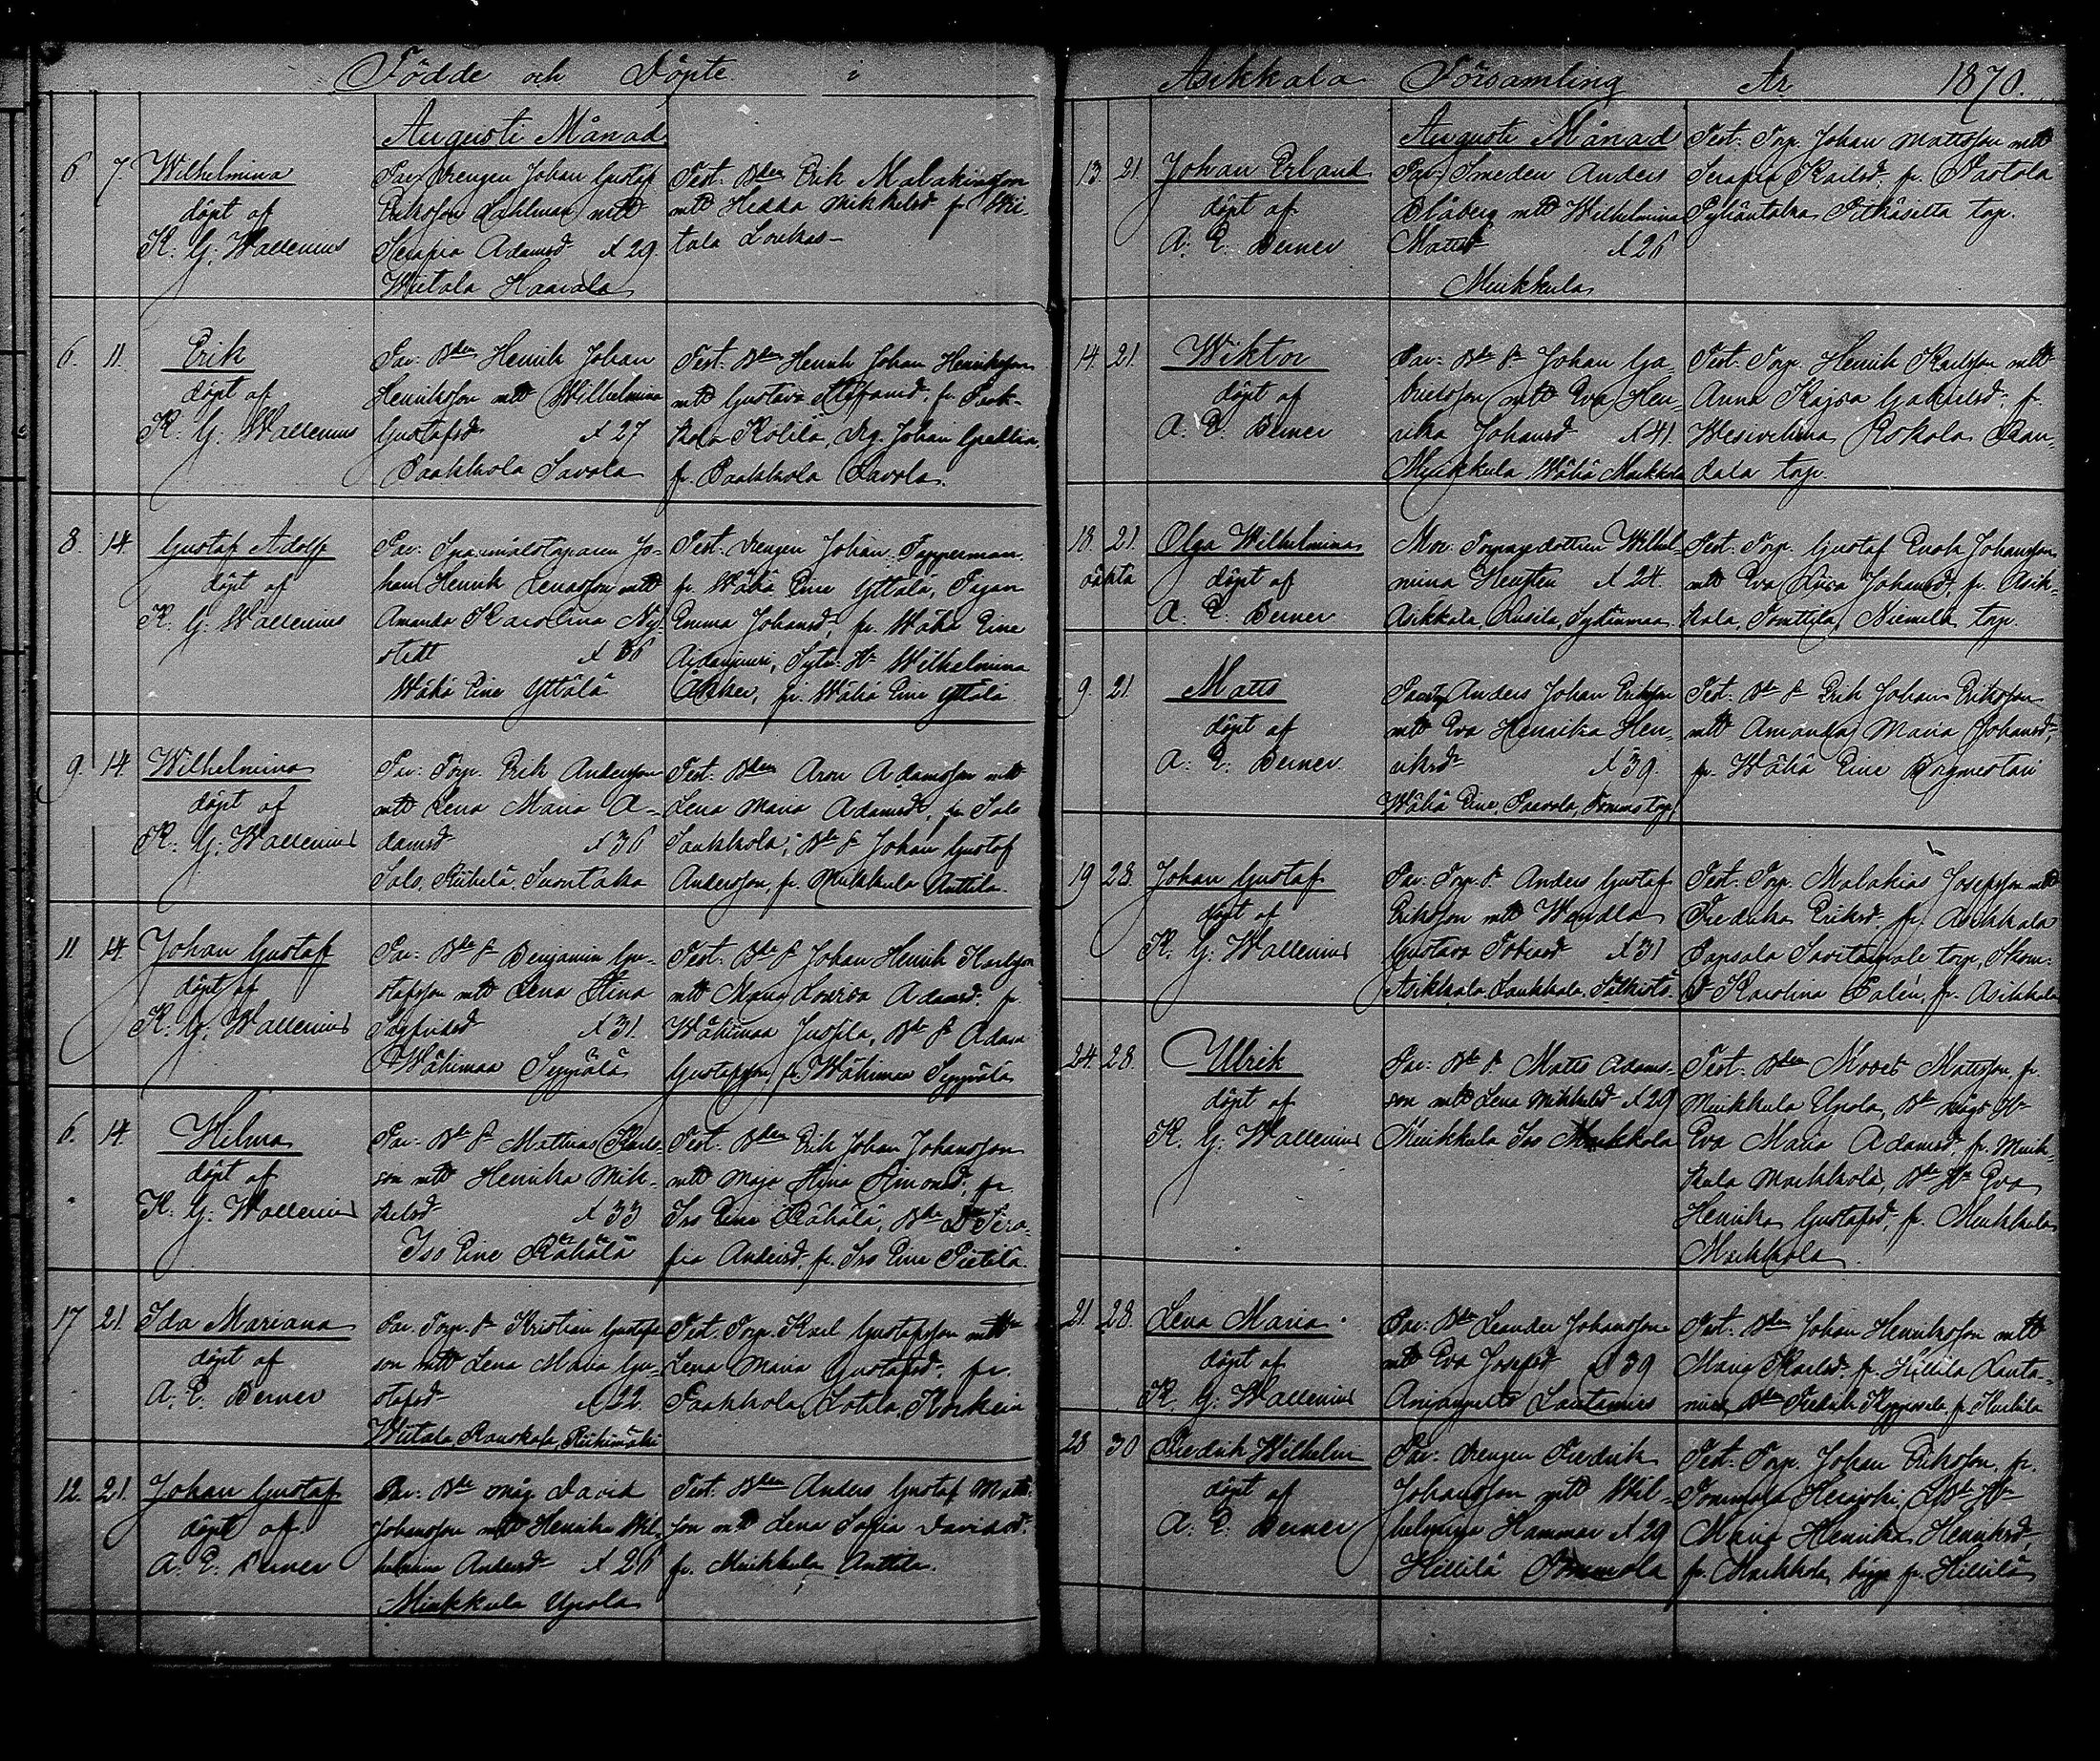 Födde och Döpte i
Augusti Månad
6 7 Wilhelmina
döpt af
K. G. Wallenius
Par: Drengen Johan Gustaf
Eriksson Dahlman mtt
Serafia Adamsd. Å 29.
Wiitala Haavala
Test: Bden Erik Malakiasson
mtt Hedda Mikkelsd. fr. Wii-
tala Loukas
6. 11. Erik
döpt af
K. G. Wallenius
Par: Bden Henrik Johan
Henriksson mtt Wilhelmina
Gustafsd. Å 27
Paakkola Savola
Test: Bden Henrik Johan Henriksson
mtt Gustava Stefansd. fr. Paak-
kola Kölilä, Drg. Johan
fr. Paakkola Savola.
8. 14. Gustaf Adolf
döpt af
K. G. Wallenius
Par: Spanmålstagaren Jo-
han Henrik Lenasson mtt
Amanda Karolina Ny-
stedt Å 36
Wähä Eine Yttälä
Test: Drengen Johan Tapperman
fr. Wähä Eine Yttälä, Pigan
Emma Johansd. fr. Wähä Eine
Aidanjuuri, Sytn. H. Wilhelmina
Åkker, fr. Wähä Eine Yttälä
9. 14. Wilhelmina
döpt af
K. G. Wallenius
Par: Torp. Erik Andersson
mtt Lena Maria A-
damsd. Å 36
Salo, Riihelä, Suontaka
Test: Bden Aron Adamsson mtt
Lena Maria Adamsd. fr. Salo
Saukkola; Bde S. Johan Gustaf
Andersson, fr. Mukkula Anttila.
11 14. Johan Gustaf
döpt af
K. G. Wallenius
Par: Bde S. Benjamin Gu-
stafsson mtt Lena Stina
Sigfridsd. Å 31.
Wähimaa Seppälä
Test: Bde S. Johan Henrik Karlsson
mtt Maria Lovisa Adamsd. fr
Wähimaa Jussila, Bde S. Adam
Gustafsson, fr. Wähimaa Seppälä
6. 14. Hilma
döpt af
K. G. Wallenius
Par: Bde S. Mattias Karls-
son mtt Henrika Mik-
kelsd. Å 33
Iso Eine Rähälä
Test: Bden Erik Johan Johansson
mtt Maja Stina Simonsd. fr
Iso Eine Rähälä, Bde D. Sera-
fia Andersd. fr. Iso Eine Pietilä.
17 21. Ida Mariana
döpt af
A. E. Berner
Par: Torp. S. Kristian Gustafs-
son mtt Lena Maria Gu-
stafsd. Å 22.
Wiitala Rauskala, Riihimäki
Test: Torp. Karl Gustafsson mtt
Lena Maria Gustafsd. fr.
Paakkola, Lotila, Korkein
12. 21. Johan Gustaf
döpt af
A. E. Berner
Par: Bde måg David
Johansson mtt Henrika Wil-
helmina Andersd. Å 26
Mukkula Ypola
Test: Bden Anders Gustaf Matts-
son mtt Lena Sofia Davidsd.
fr. Mukkula Anttila.
Asikkala Församling År 1870.
Augusti Månad
13. 21. Johan Erland
döpt af
A. E. Berner
Par: Smeden Anders
Blåberg mtt Wilhelmina
Mattsd. Å 26
Mukkula
Test: Torp. Johan Mattsson mtt
Serafia Karlsd. fr. Nastola
Pyhäntaka Pitkäsilta torp.
14. 21. Wiktor
döpt af
A. E. Berner
Par: Bde S. Johan Ga-
brielsson mtt Eva Hen-
rika Johansd. Å 41.
Mukkula Wähä Maekkola
Test: Torp. Henrik Karlsson mtt
Anna Kajsa Gabrielsd. fr.
Wesivehma Eskola Ran-
dala torp.
18. 21. Olga Wilhelmina
oäkta döpt af
A. E. Berner
Mor: Torparedottren Wilhel-
mina Hensten Å 24.
Asikkala, Kusila, Sydänmaa
Test: Torp. Gustaf Enok Johansson
mtt Eva Lisa Johansd. fr. Asik-
kala, Tomttila, Niemelä torp.
9. 21. Matts
döpt af
A. E. Berner
Anders Johan Eriksson
mtt Eva Henrika Hen-
riksd. Å 39.
Wähä Eine, Paavola, Tommo torp
Test: Bde S. Erik Johan Eriksson
mtt Amanda Maria Johansd.
fr. Wähä Eine Borgmestari
19 28. Johan Gustaf
döpt af
K. G. Wallenius
Par: Torp. S. Anders Gustaf
Eriksson mtt Wendla
Gustava Tobiasd. Å 31
Asikkala, Laukkala,
Test: Torp. Malakias Josefsson mtt
Fredrika Eriksd. fr. Asikkala
Papsala Savitaipale torp, Skom.
D. Karolina Palén, fr. Asikkala
24. 28. Ulrik
döpt af
K. G. Wallenius
Par: Bde S. Matts Adams-
son mtt Lena Mikkelsd. Å 29
Mukkula Iso Maekkola
Test: Bden Moses Mattsson, fr.
Mukkula Ypola, Bde mågs H.
Eva Maria Adamsd. fr. Muk-
kula Maekkola, Bde H. Eva
Henrika Gustafsd. fr. Mukkula
Maekkola.
21. 28. Lena Maria
döpt af
K. G. Wallenius
Par: Bde Leander Johansson
mtt Eva Josefsd. Å 39
Anianpelto Lautamies
Test: Bden Johan Henriksson mtt
Maria Karlsd. fr. Hillilä Lauta-
mies, Bden Fredrik
28 30 Fredrik Wilhelm
döpt af
A. E. Berner
Par: Drengen Fredrik
Johansson mtt Wil-
helmina Hammar Å 29
Hillilä Ommola
Test: Torp. Johan Eriksson, fr.
Tommola Herajoki, Bde H.
Maria Henrika Henriksd.
fr. Maekkola, bägge fr. Hillilä